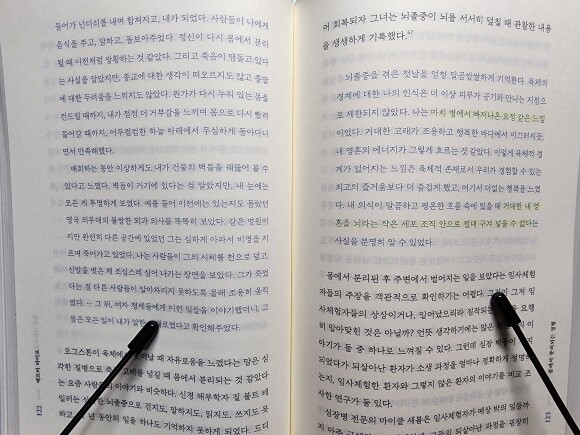 들어가 넌더리를 내며 합쳐지고, 내가 되었다. 사람들이 나에게
음식을 주고, 말하고, 돌보아주었다. 정신이 다시 몸에서 분리
될 때 이전처럼 방황하는 것 같았다. 그리고 죽음이 맴돌고 있다
는 사실을 알았지만, 종교에 대한 생각이 떠오르지도 않고 종말
에 대한 두려움을 느끼지도 않았다. 뭔가가 다시 누워 있는 몸을
건드릴 때까지, 내가 점점 더 거부감을 느끼며 몸으로 다시 빨려
들어갈 때까지, 어두컴컴한 하늘 아래에서 무심하게 돌아다니
면서 만족해했다.
배회하는 동안 이상하게도 내가 건물의 벽들을 꿰뚫어 볼 수
있다고 느꼈다. 벽들이 거기에 있다는 걸 알았지만, 내 눈에는
모든 게 투명하게 보였다. 예를 들어 이전에는 있는지도 몰랐던
영국 의무대의 불쌍한 외과 의사를 똑똑히 보았다. 같은 병원이
지만 완전히 다른 공간에 있었던 그는 심하게 아파서 비명을 지
르며 죽어가고 있었다. 나는 사람들이 그의 시체를 천으로 덮고
신발을 벗은 채 조심스레 실어 나가는 장면을 보았다. 그가 죽었
다는 걸 다른 사람들이 알아차리지 못하도록 몰래 조용히 움직
였다. … 그 뒤, 여자 형제들에게 이런 일들을 이야기했더니, 그
들은 모든 일이 내가 말한 대로였다고 확인해주었다.
오그스톤이 육체에서 벗어날 때 자유로움을 느꼈다는 말은 심
각한 질병으로 죽을 고비를 넘길 때 몸에서 분리되는 것 같았다
는 요즘 사람들의 이야기와 비슷하다. 신경 해부학자 질 볼트 테
일러는 심각한 뇌졸중으로 걷지도, 말하지도, 읽지도, 쓰지도 못
하고 년 동안의 일을 하나도 기억하지 못하게 되었다. 드디
122
어 회복되자 그녀는 뇌졸중이 뇌를 서서히 덮칠 때 관찰한 내용
을 생생하게 기록했다.⁴⁷
뇌졸중을 겪은 첫날을 엄청 달콤쌉쌀하게 기억한다. 육체의
경계에 대한 나의 인식은 더 이상 피부가 공기와 만나는 지점으
로 제한되지 않았다. 나는 마치 병에서 빠져나온 요정 같은 느낌
이었다. 거대한 고래가 조용하고 행복한 바다에서 미끄러지듯,
내 영혼의 에너지가 그렇게 흐르는 것 같았다. 이렇게 육체적 경
계가 없어지는 느낌은 육체적 존재로서 우리가 경험할 수 있는
최고의 즐거움보다 더 즐겁게 했고, 여기서 더없는 행복을 느꼈
다. 내 의식이 달콤하고 평온한 흐름 속에 있을 때 거대한 내 영
혼을 뇌라는 작은 세포 조직 안으로 절대 구겨 넣을 수 없다는
사실을 분명히 알 수 있었다.
몸에서 분리된 후 주변에서 벌어지는 일을 보았다는 임사체험
자들의 주장을 객관적으로 확인하기는 어렵다. 그것이 그저 임
사체험자들의 상상이거나, 일어났으리라 짐작되는 요행
히 알아맞힌 것은 아닐까? 언뜻 생각하기에는 많은 이
야기가 둘 중 하나로 느껴질 수 있다. 그런데 심장 박동이
되었다가 되살아난 환자가 소생 과정을 얼마나 정확하게 설명하
는지, 임사체험한 환자와 그렇지 않은 환자의 이야기를 비교 조
사한 연구가 둘 있다.
심장병 전문의 마이클 새봄은 임사체험자에게 예상 밖의 일들까
123